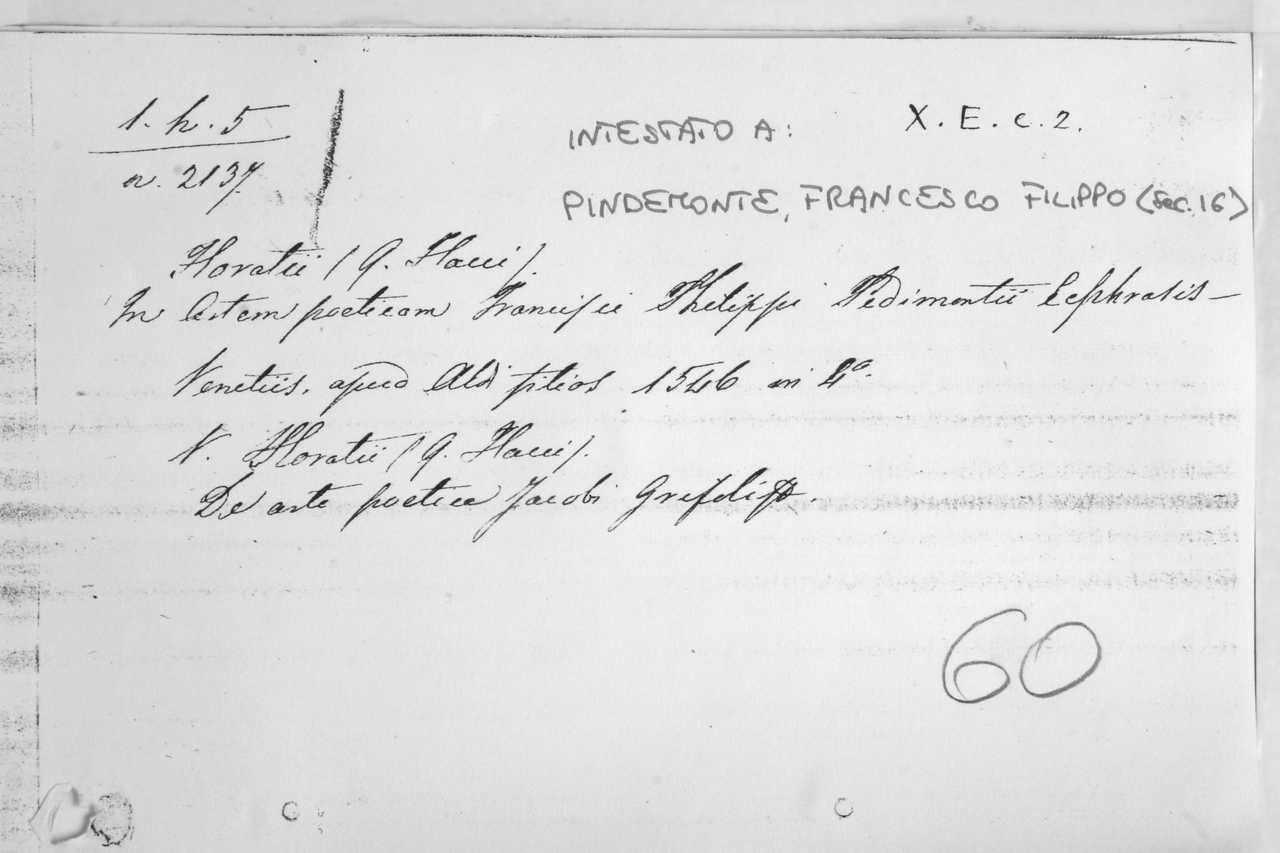 1. h. 5
n. 2137
INTESTATO A:
X. E. c. 2.
PINDEMONTE, FRANCESCO FILIPPO (Sec. 16)
Horatii (Q. Flacci).
In Artem poeticam Francisci Philippi Pedimontii Ecphrasis –
Venetiis, apud Aldi filios 1546 in 4º.
V. Horatii (Q. Flacci).
De arte poetica Jacobi
60